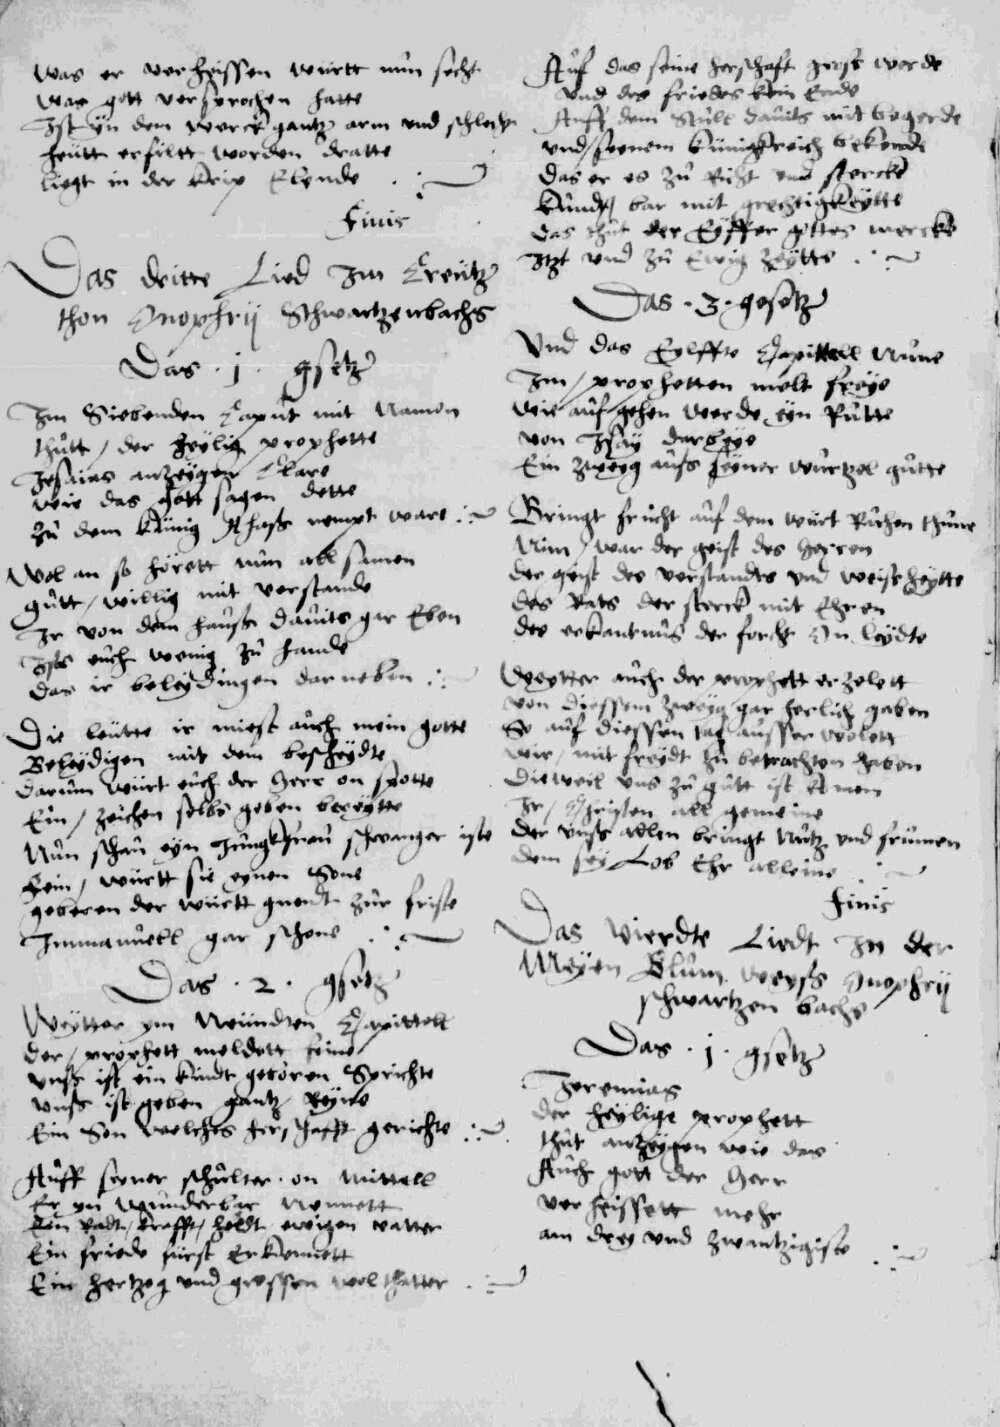 Was er verheissen württ nun secht
Was gott versprochen hatte
Ist yn dem werck gantz arm und schlecht
heütt erfiltt worden dratte
liegt in der krip Elende
Finis
Das dritte Lied Im Creütz
thon Onophrij Schwartzenbachs
Das . 1 . gsetz
Im Siebenden Caput mit Namen
thutt der heylig prophette
Jesaias anzeygen Clare
wie das Gott sagen dette
Zu dem künig Ahass nempt ware
Wol an so hörett nun all samen
gutt willig mit verstande
Ir von dem hauss davits gar Eben
Ists euch wenig zu hande
Das ir beleydingen darneben
Die leütte ir miest auch mein gotte
Beleydigen mit dem bescheydte
Darum würt euch der Herr on spotte
Ein zeichen selbs geben bereytte
Nun schau eyn Jungkfrau schwanger iste
Sein württ sie eynen Sone
geberen der württ gnendt zur friste
Immanuell gar schone
Das . 2 . gsetz
Weytter ym Neündten Capittell
der prophett meldett feine
unss ist ein kindt geboren Sprichte
unss ist geben gantz Reyne
Ein Son welches herschafft gerichte
Auff seiner schulter on mittell
Er yn wunderbar Nennett
Ein Radt krefft heldt ewigen vatter
Ein friede fürst Erkennett
Ein hertzog und grossen wolthatter
Auf das seine herschaft gross werde
und des friedes kein Ende
Auff dem Stull davits mit begerde
und seynem künigkreich bekende
Das er es zu Richt und stercke
kundtbar mit grechtigkeytte
das thut der Eyffer gottes mercke
Itzt und zu Ewig zeytte
Das . 3 . gesetz
Und das Eylffte Capittell Nune
Im propheten melt freye
wie auf gehen werde eyn Rutte
von Isay darbeye
Ein zweyg auss seyner wurtzel gutte
Bringt frücht auf dem würt Ruhen thune
Nim war der geist des Herren
der geist des verstandes und weissheytte
des Rats der sterck mit Ehren
der erkantnus der forcht On leydte
Weytter auch der prophett erzelett
von diessem zweyg gar herlich gaben
So auf diessen tag ausserwelett
wir mit freydt zu betrachten haben
Dieweil uns zu gutt ist kumen
Ir Christen all gemeine
der unss allen bringt Nutz und frummen
dem sey Lob Ehr alleine
Finis
Das Vierdte Liedt In der
Meyen Blum weyss Onophrij
schwartzen bachs
Das . 1 . gsetz
Jeremias
der heylige prophett
thut anzeygen wie das
Auch gott der Herr
verheissett mehr
am drey und zwantzigiste